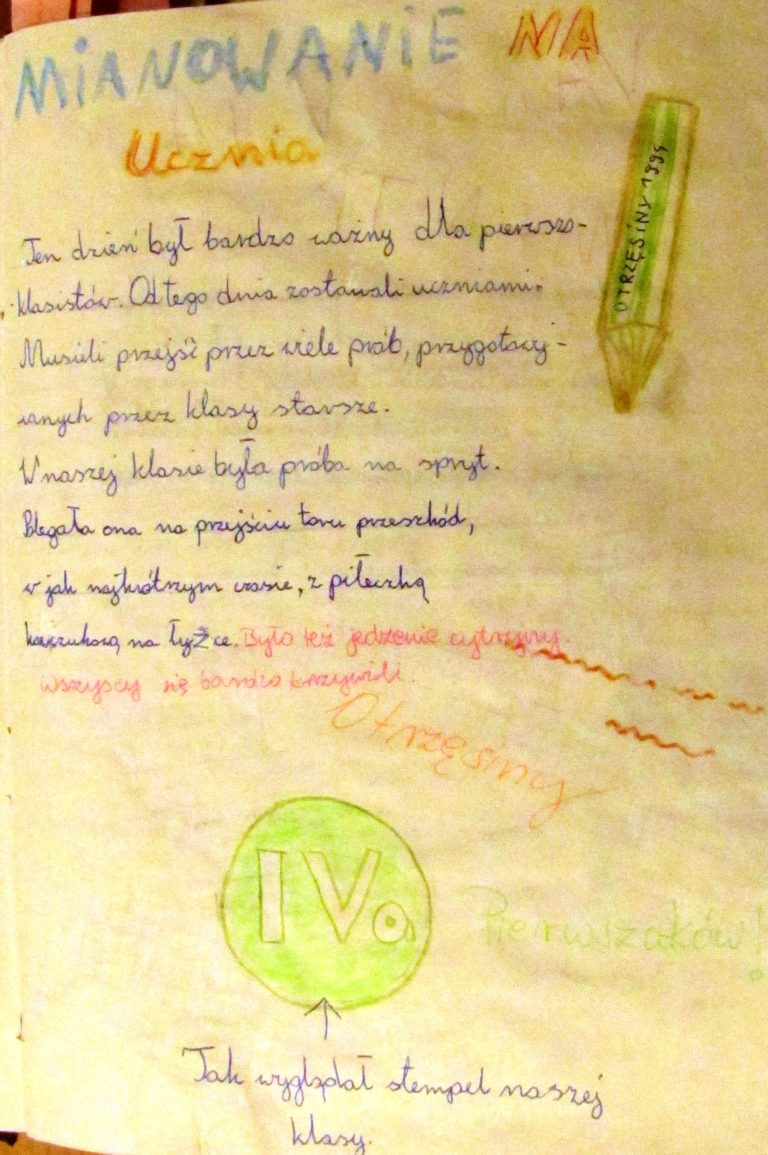 MIANOWANIE NA
Ucznia
OTRZĘSINY 1994
Ten dzień był bardzo ważny dla pierwszo-
klasistów. Od tego dnia zostawali uczniami.
Musieli przejść przez wiele prób, przygotowy-
wanych przez klasy starsze.
W naszej klasie była próba na spryt.
Polegała ona na przejściu toru przeszkód,
w jak najkrótrzym czasie, z piłeczką
na łyżce. Było też jedzenie cytryny.
Wszyscy się bardzo krzywili.
Otrzęsiny
IVa
Pierwszaków!
Tak wyglądał stempel naszej
klasy.